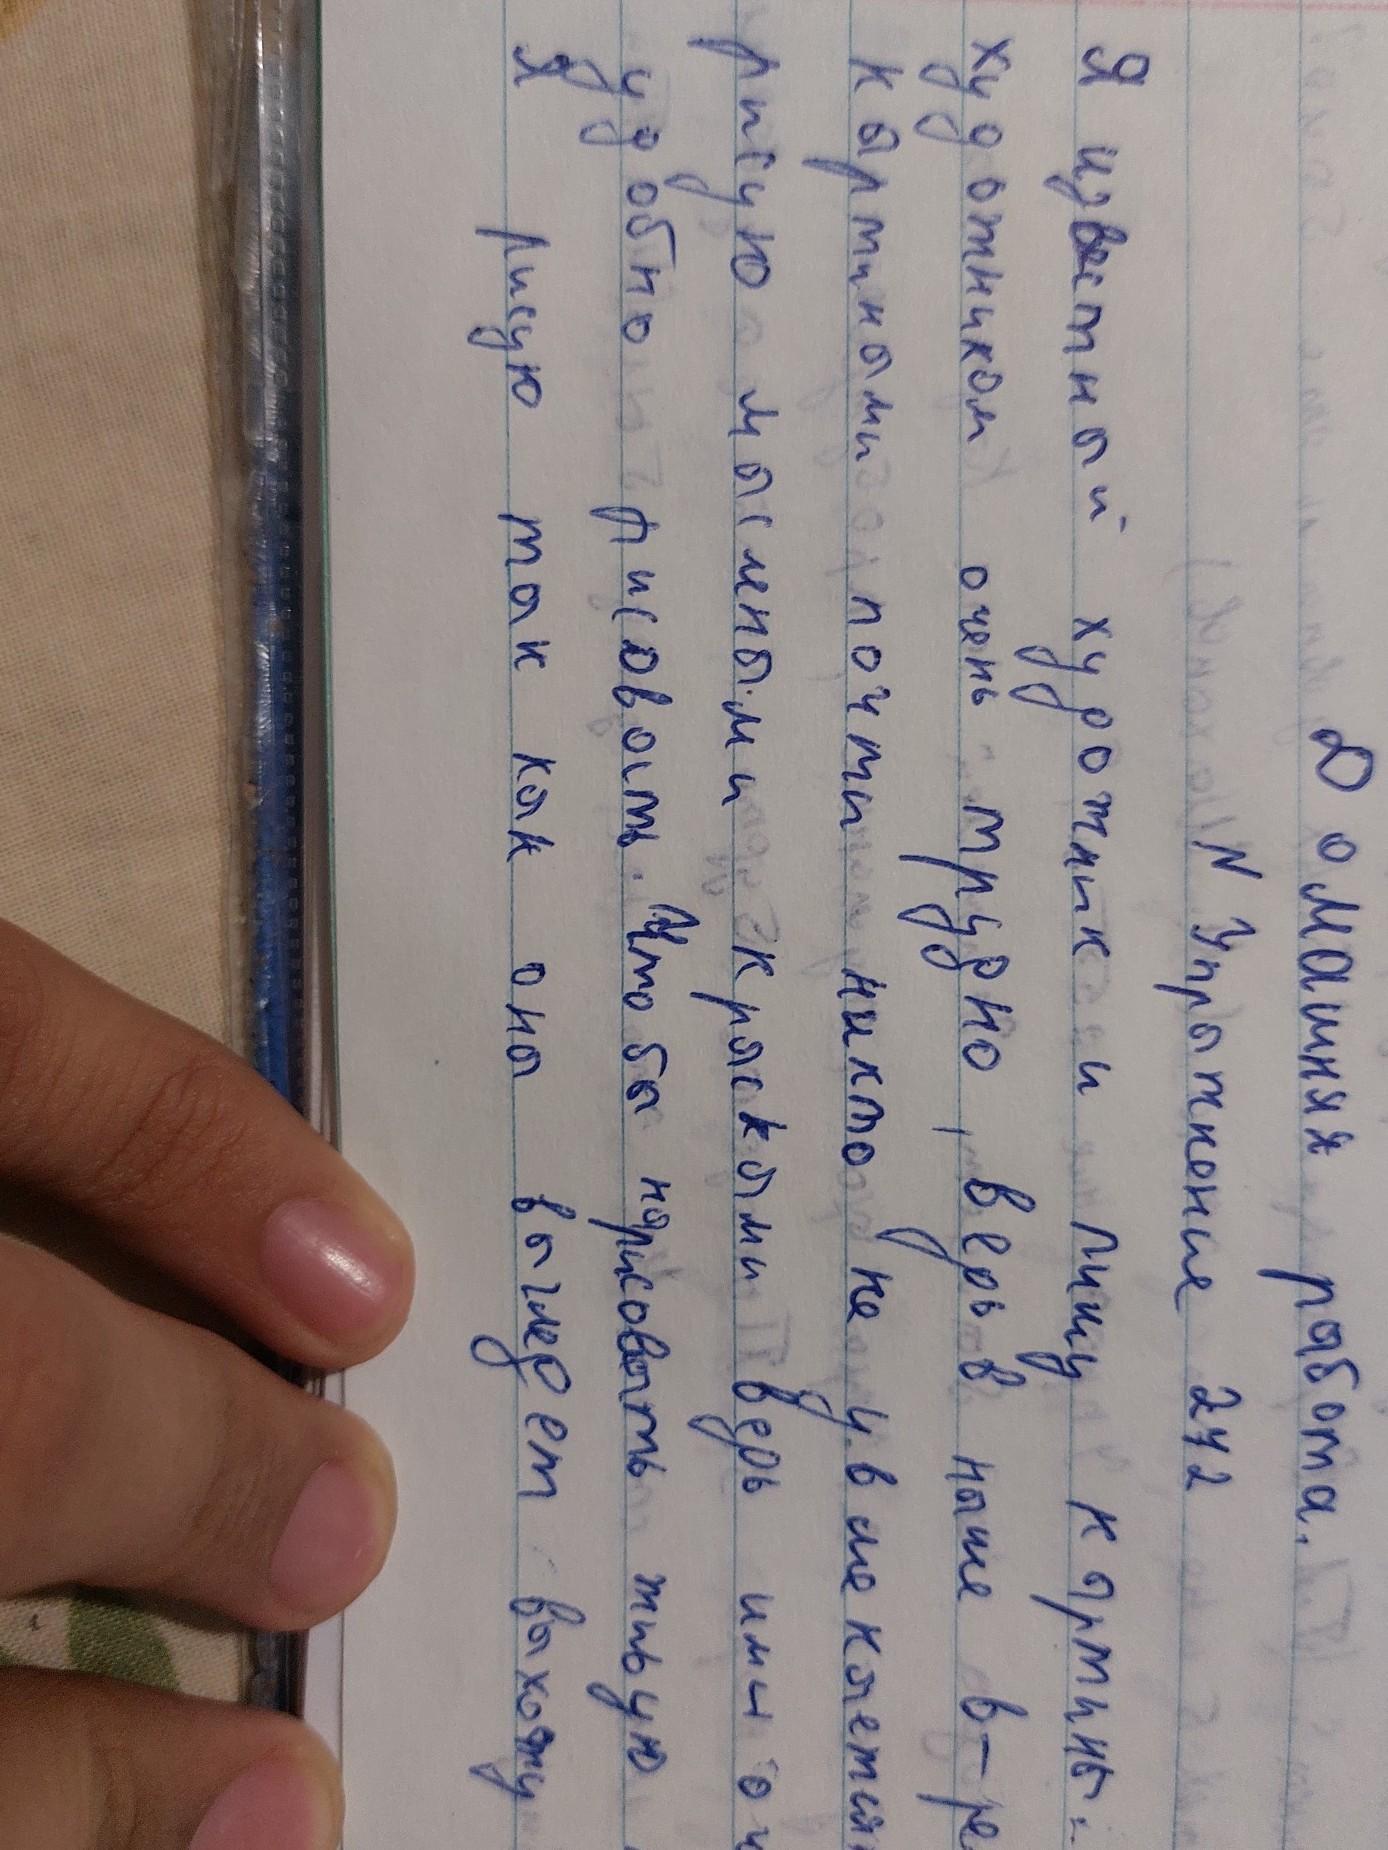 Домашняя работа.
N Упражнение 242
Я известный художник и пишу картины.
художником очень трудно, верь в наше в-ре
картинами почти никто не увлекается
рисую маслеными красками верь ими оч
удобно рисовать. Что бы нарисовать живую
я рисую так как она выгледет выхожу